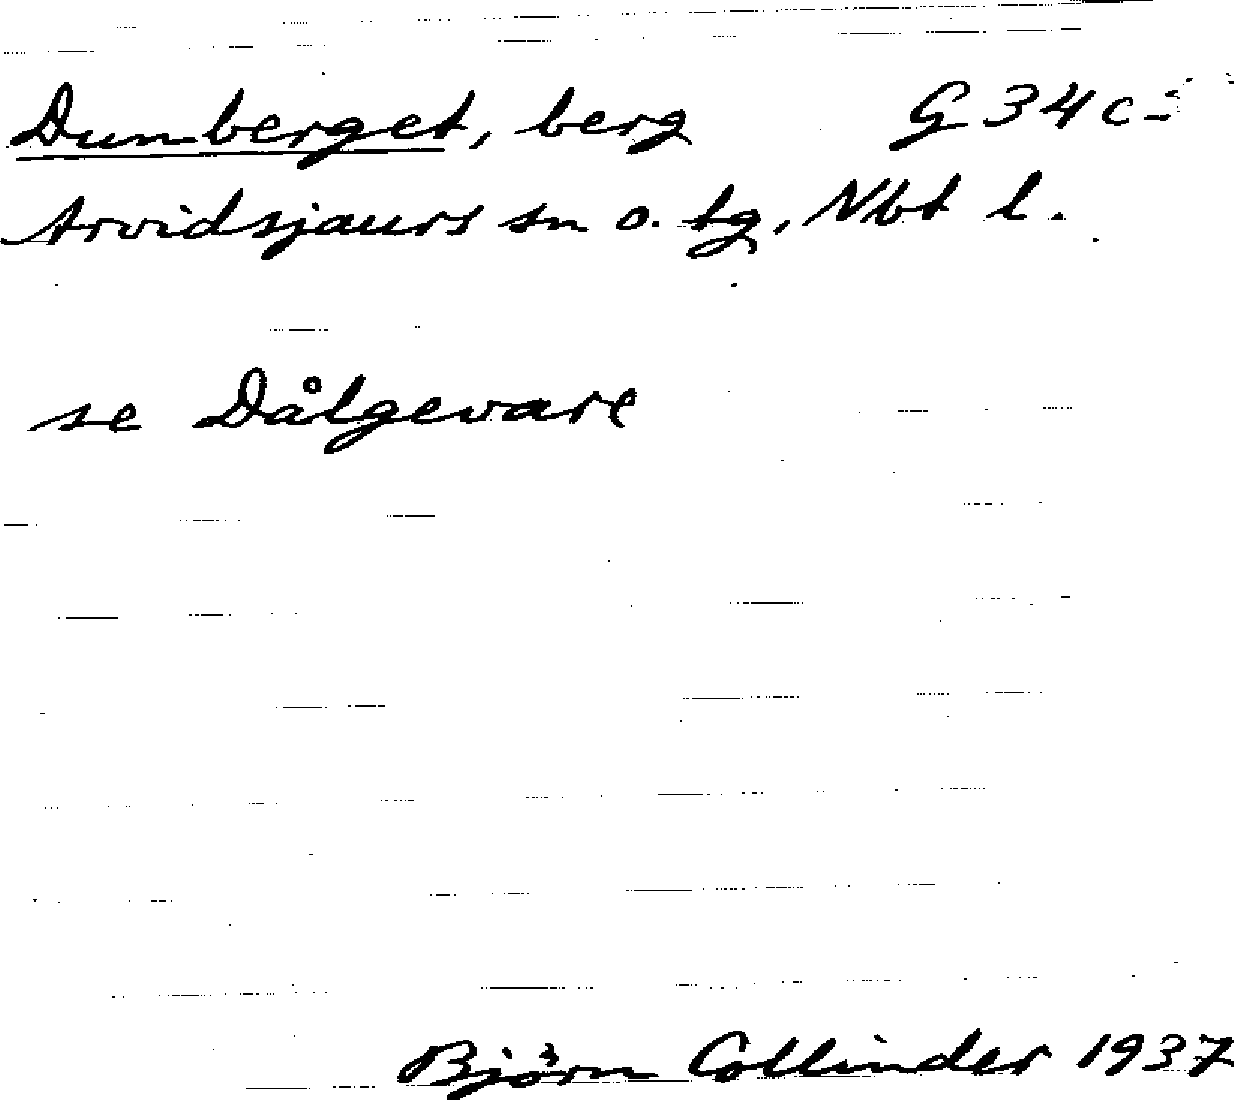 Dunberget, berg G 34 c
Arvidsjaurs sn o. tg, Nbt l.
se Dålgevare
Björn Collinder 1937